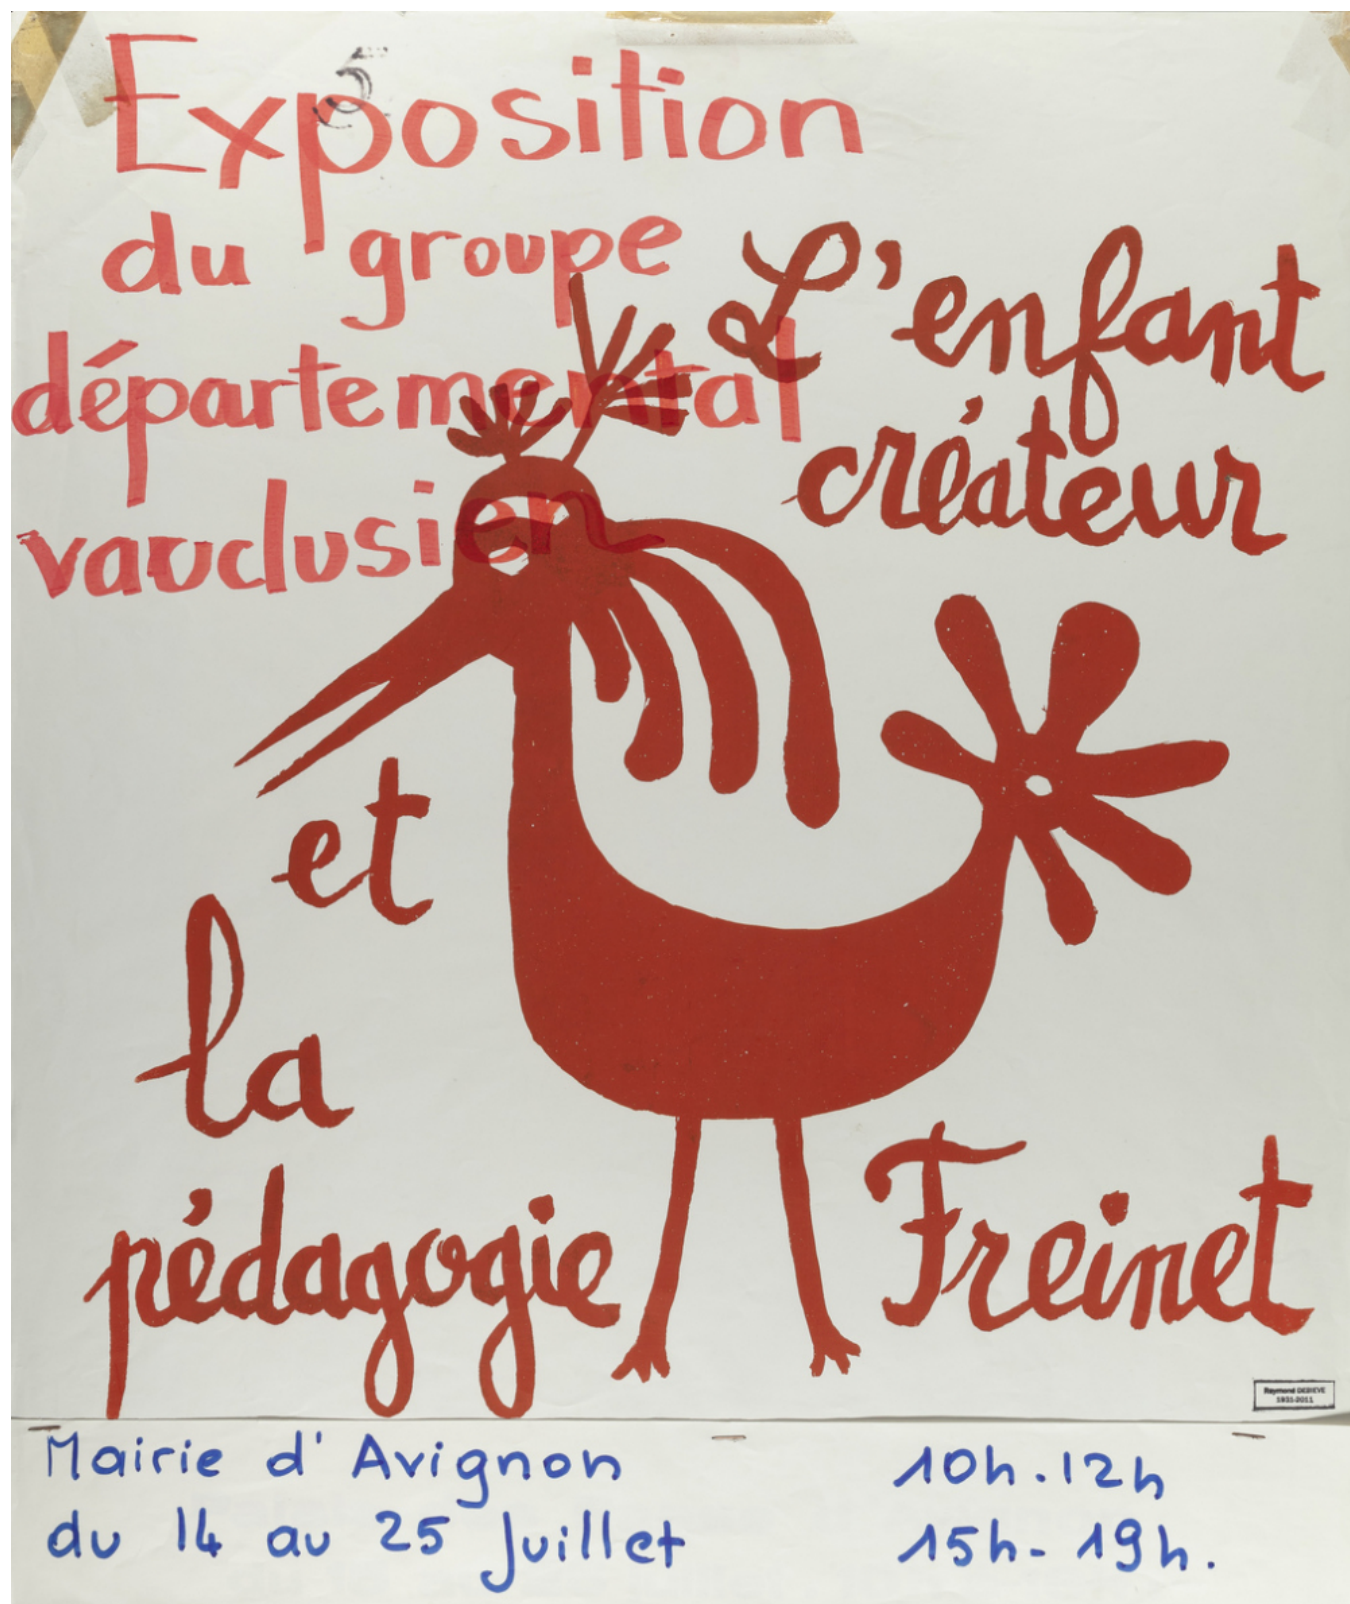 Exposition
5
du groupe
départemental
vauclusien
L'enfant
créateur
et
la
pédagogie
Freinet
Raymond DERIEVE
1931-2011
Mairie d'Avignon
10h.12h
du 14 au 25 Juillet
15h-19h.